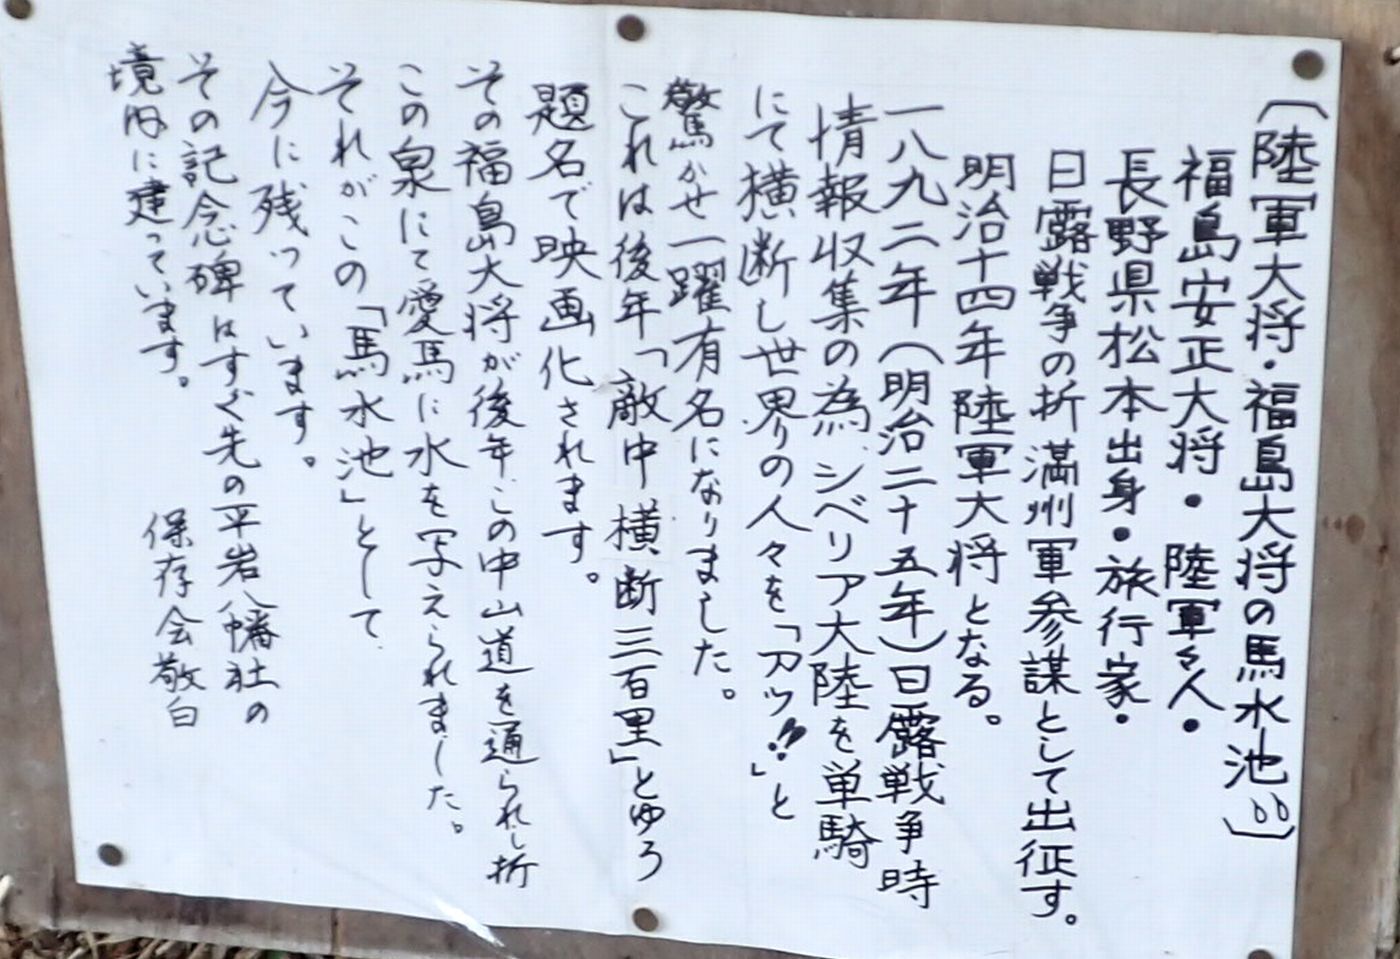 〔陸軍大将・福島大将の馬水池〕
福島安正大将・陸軍々人・
長野県松本出身・旅行家・
日露戦争の折満州軍参謀として出征す。
明治十四年陸軍大将となる。
一八九二年(明治二十五年)日露戦争時
情報収集の為、シベリア大陸を単騎
にて横断し世界りの人々を「アッ!!」と
驚かせ一躍有名になりました。
これは後年「敵中横断三百里」とゆう
題名で映画化されます。
その福島大将が後年この中山道を通られし折
この泉にて愛馬に水を写えられました。
それがこの「馬水池」として
今に残っています。
その記念碑はすぐ先の平岩八幡社の
境内に建っています。
保存会敬白